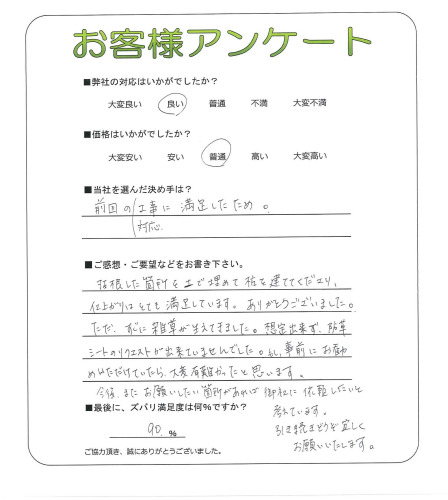 お客様アンケート
■弊社の対応はいかがでしたか？
大変良い 良い 普通 不満 大変不満
■価格はいかがでしたか？
大変安い 安い 普通 高い 大変高い
■当社を選んだ決め手は？
前回の工事に満足したため。
対応
■ご感想・ご要望などをお書き下さい。
抜根した箇所を土で埋めて杭を建ててくださり、
仕上がりはとても満足しています。ありがとうございました。
ただ、すぐに雑草が生えてきました。想定出来ず、防草
シートのリクエストが出来ていませんでした。もし、事前にお勧
めいただけていたら、大変有難かったと思います。
今後、またお願いしたい箇所があれば御社に依頼したいと
考えています。
引き続きどうぞ宜しく
お願いいたします。
■最後に、ズバリ満足度は何％ですか？
90 ％
ご協力頂き、誠にありがとうございました。